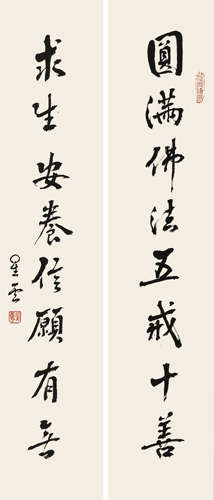 圓滿佛法五戒十善
求生安養信願有無
星雲